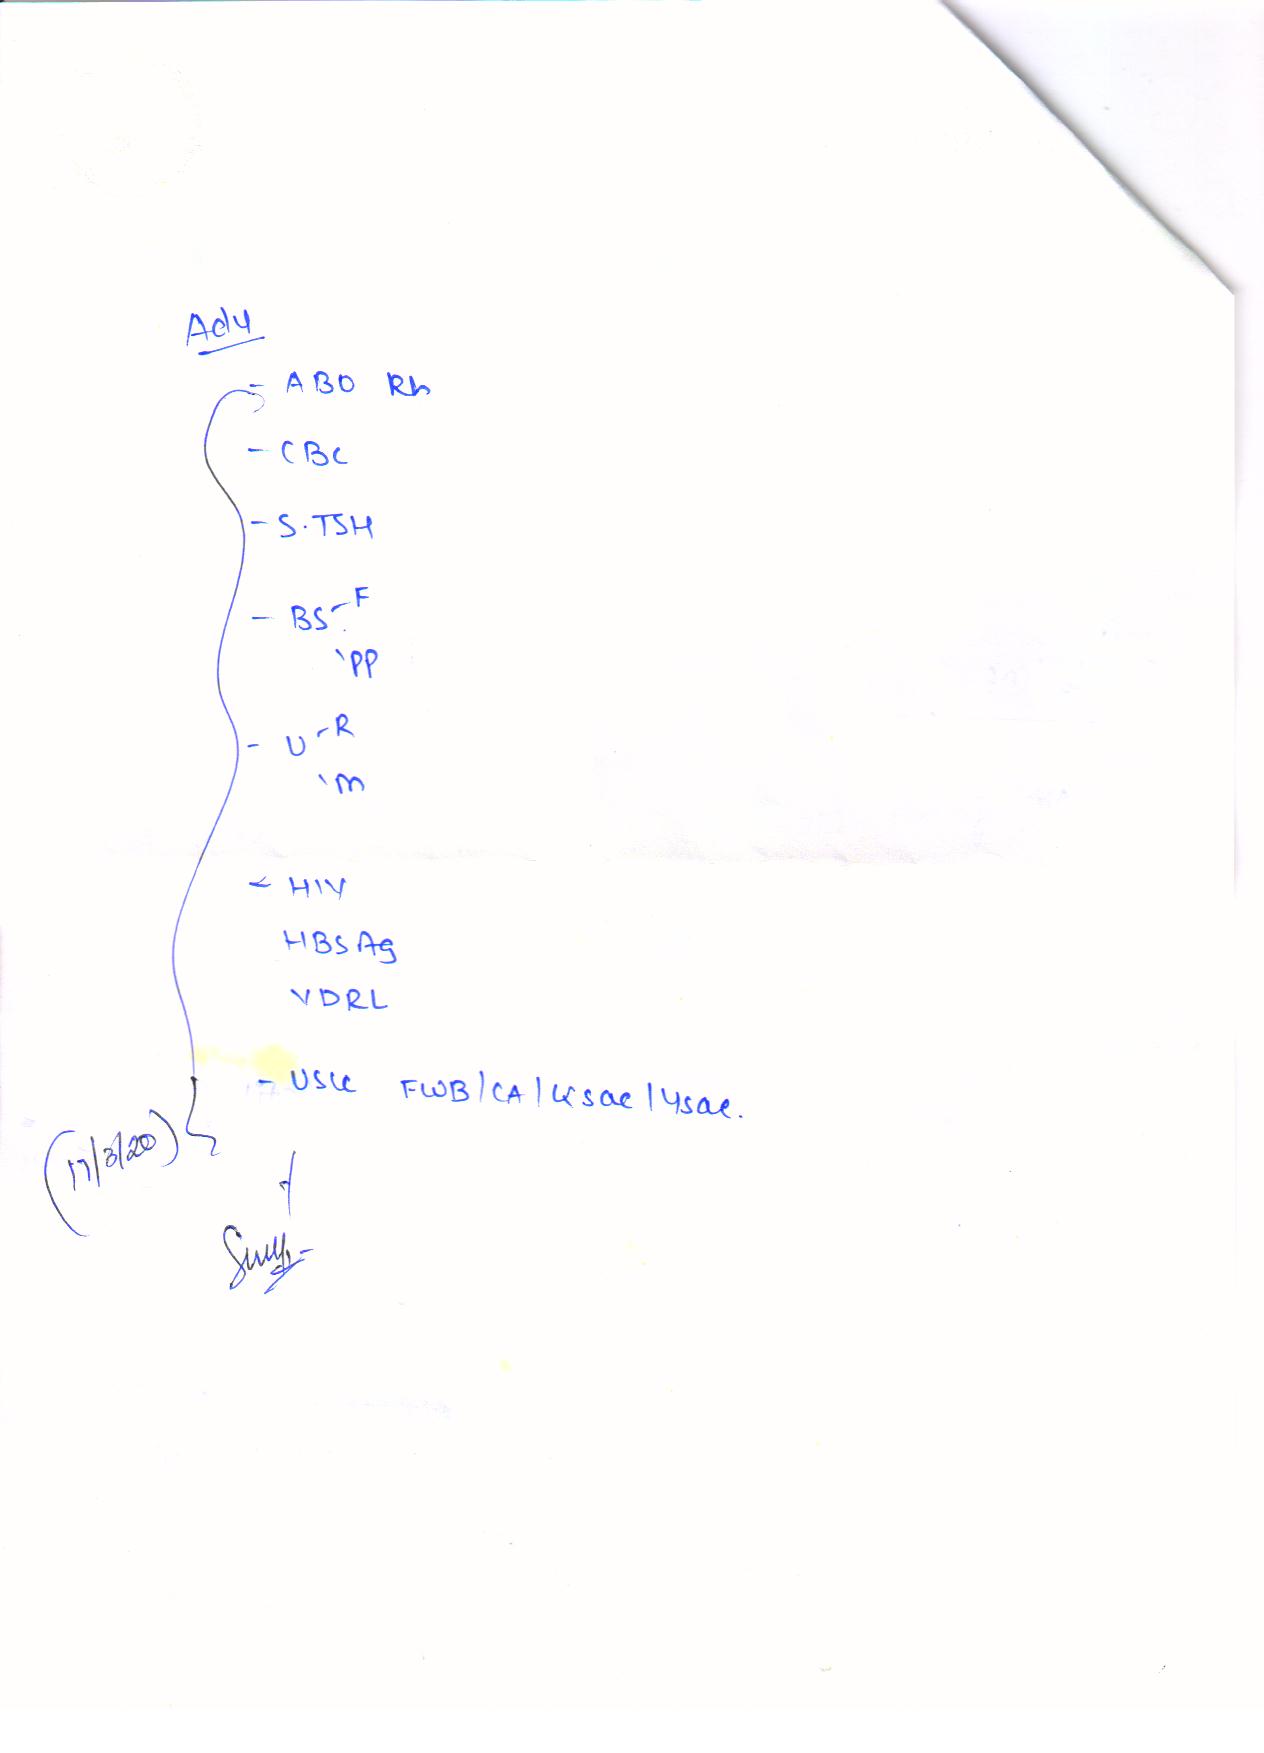 Adv
- ABO Rh
- CBC
- S.TSH
- BS - F
PP
- U - R
m
- HIV
HBSAg
VDRL
- USG FWB/CA/Gsac/Ysac.
(17/3/20)